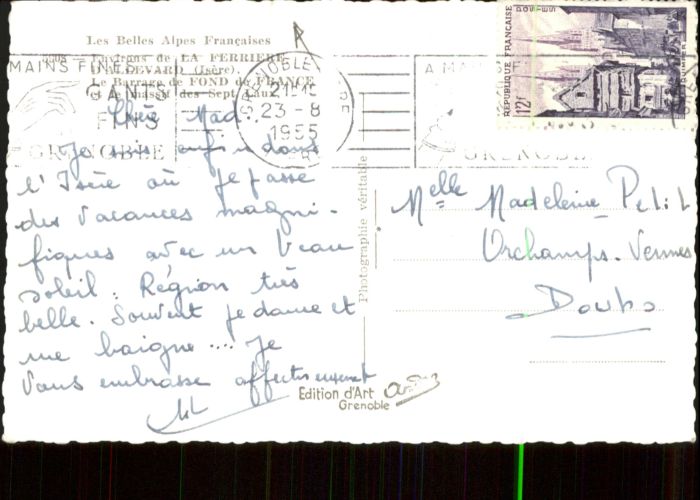 Les Belles Alpes Françaises
Environs de LA FERRIÈRE
D'ALLEVARD (Isère).
Le Barrage de FOND de FRANCE
et le Massif des Sept Laux
MAINS FINES
GANTS
FINS
GRENOBLE
GRENOBLE
23-8
1955
A MA
GRENOBLE
RÉPUBLIQUE FRANÇAISE
POSTES
12f
Chère Mad.
Je suis enfin dans
l'Isère où je passe
des vacances magni-
fiques avec un beau
soleil. Région très
belle. Souvent je danse et
me baigne.... Je
vous embrasse affectueusement
ML
Photographie véritable
Melle Madeleine Petit
Orchamps-Vennes
Doubs
Edition d'Art
Grenoble